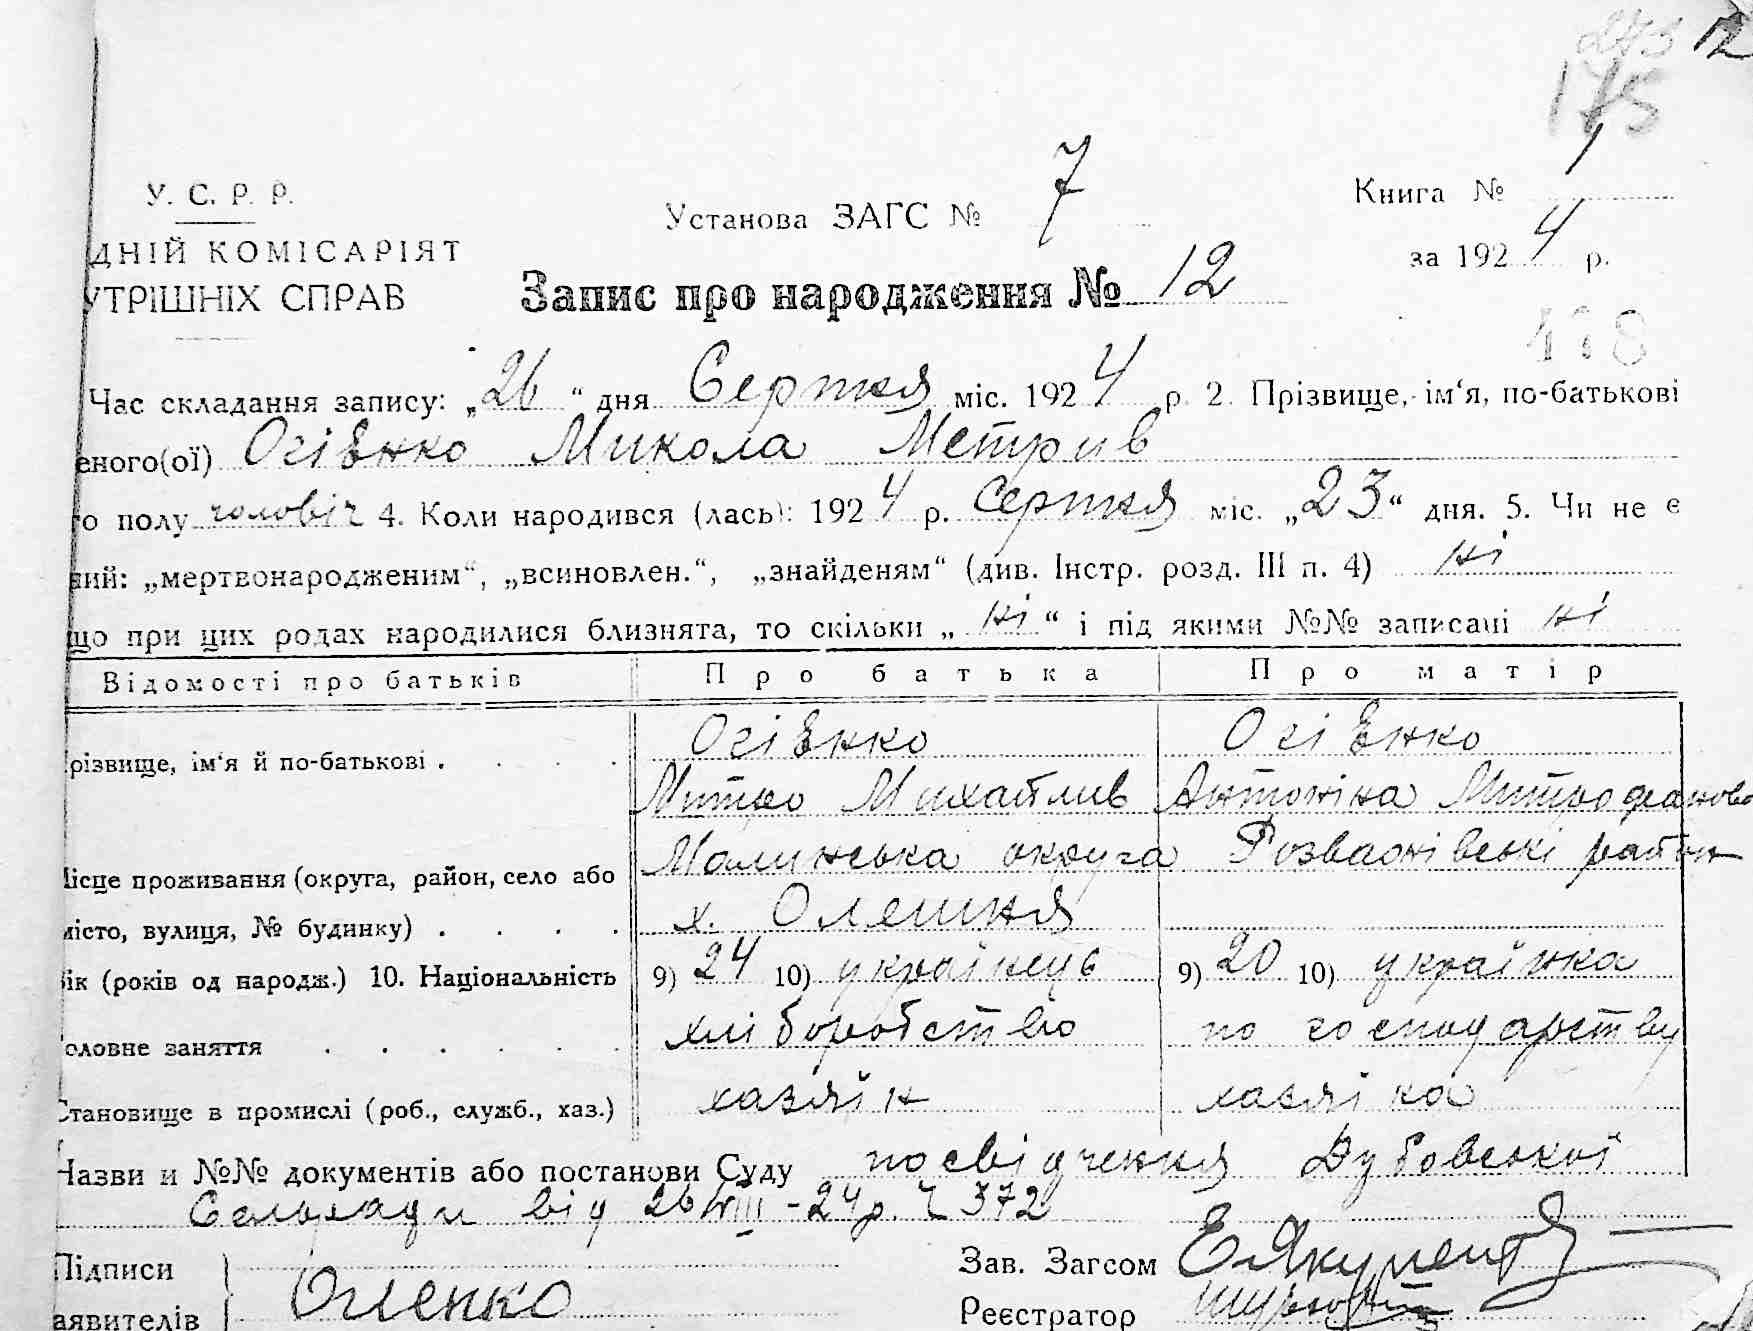 273 12
175
У. С. Р. Р.
Установа ЗАГС № 7
Книга № 1
ДНІЙ КОМІСАРІЯТ
за 1924 р.
УТРІШНІХ СПРАВ
Запис про народження № 12
Час складання запису: „26“ дня Серпня міс. 1924 р. 2. Прізвище, ім‘я, по-батькові
еного(ої) Огієнко Микола Метрив
го полу чоловіч 4. Коли народився (лась): 1924 р. Серпня міс. „23“ дня. 5. Чи не є
ний: „мертвонародженим“, „всиновлен.“, „знайденям“ (див. Інстр. розд. III п. 4) ні
що при цих родах народилися близнята, то скільки „ні“ і під якими №№ записані ні
Відомості про батьків Про батька Про матір
Огієнко Огієнко
різвище, ім‘я й по-батькові
Митро Михайлив Антоніна Митрофанова
Малинська округа Розважівські район
ісце проживання (округа, район, село або
х. Олешня
місто, вулиця, № будинку)
ік (років од народж.) 10. Національність 9) 24 10) українець 9) 20 10) українка
оловне заняття хліборобство по господарству
Становище в промислі (роб., служб., хаз.) хазяїн хазяїка
Назви и №№ документів або постанови Суду посвідчення Дубовської
Сельради від 26/VIII-24р. 372
Підписи
Зав. Загсом
аявителів Огиенко
Реєстратор